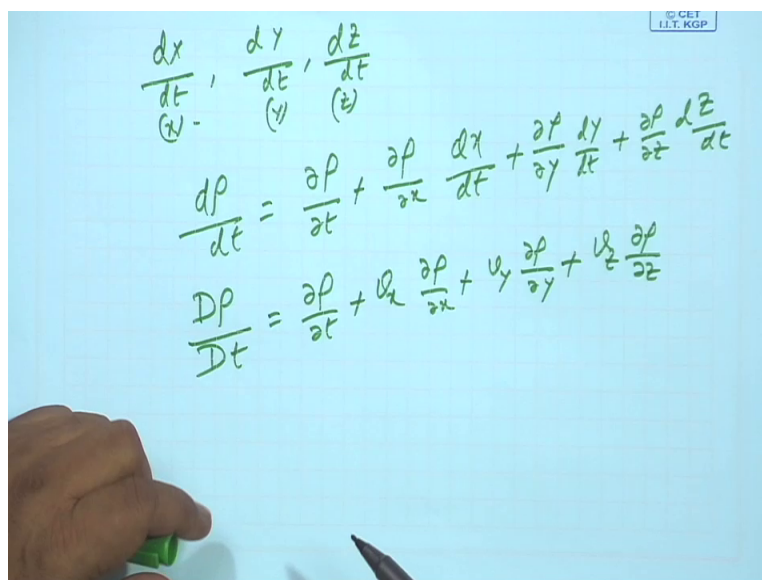 © CET
I.I.T. KGP
dx/dt , dy/dt , dz/dt
(x) - (y) (z)
dρ/dt = ∂ρ/∂t + ∂ρ/∂x dx/dt + ∂ρ/∂y dy/dt + ∂ρ/∂z dz/dt
Dρ/Dt = ∂ρ/∂t + v_x ∂ρ/∂x + v_y ∂ρ/∂y + v_z ∂ρ/∂z